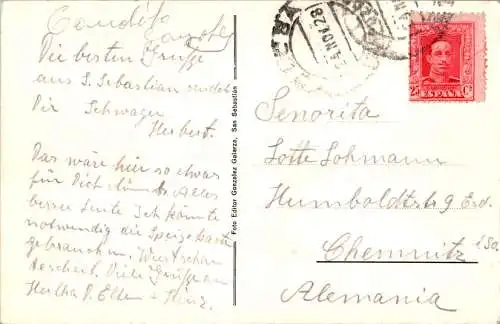 Die besten Grüße
aus S. Sebastian sendet
Dir Schwager
Herbert.
Das wäre hier so etwas
für Dich Alles
bessre Leute Ich könnte
notwendig die Speisekarte
gebrauchen. Weißt schon
Bescheid. Viele Grüße an
Hertha &. Ellen + Heinz.
Foto Editor González Galarza. San Sebastián
NOV 28
25 Cs
ESPAÑA
Senorita
Lotte Lohmann
Humboldtstr. 9 Erd.
Chemnitz i/Sa
Alemania